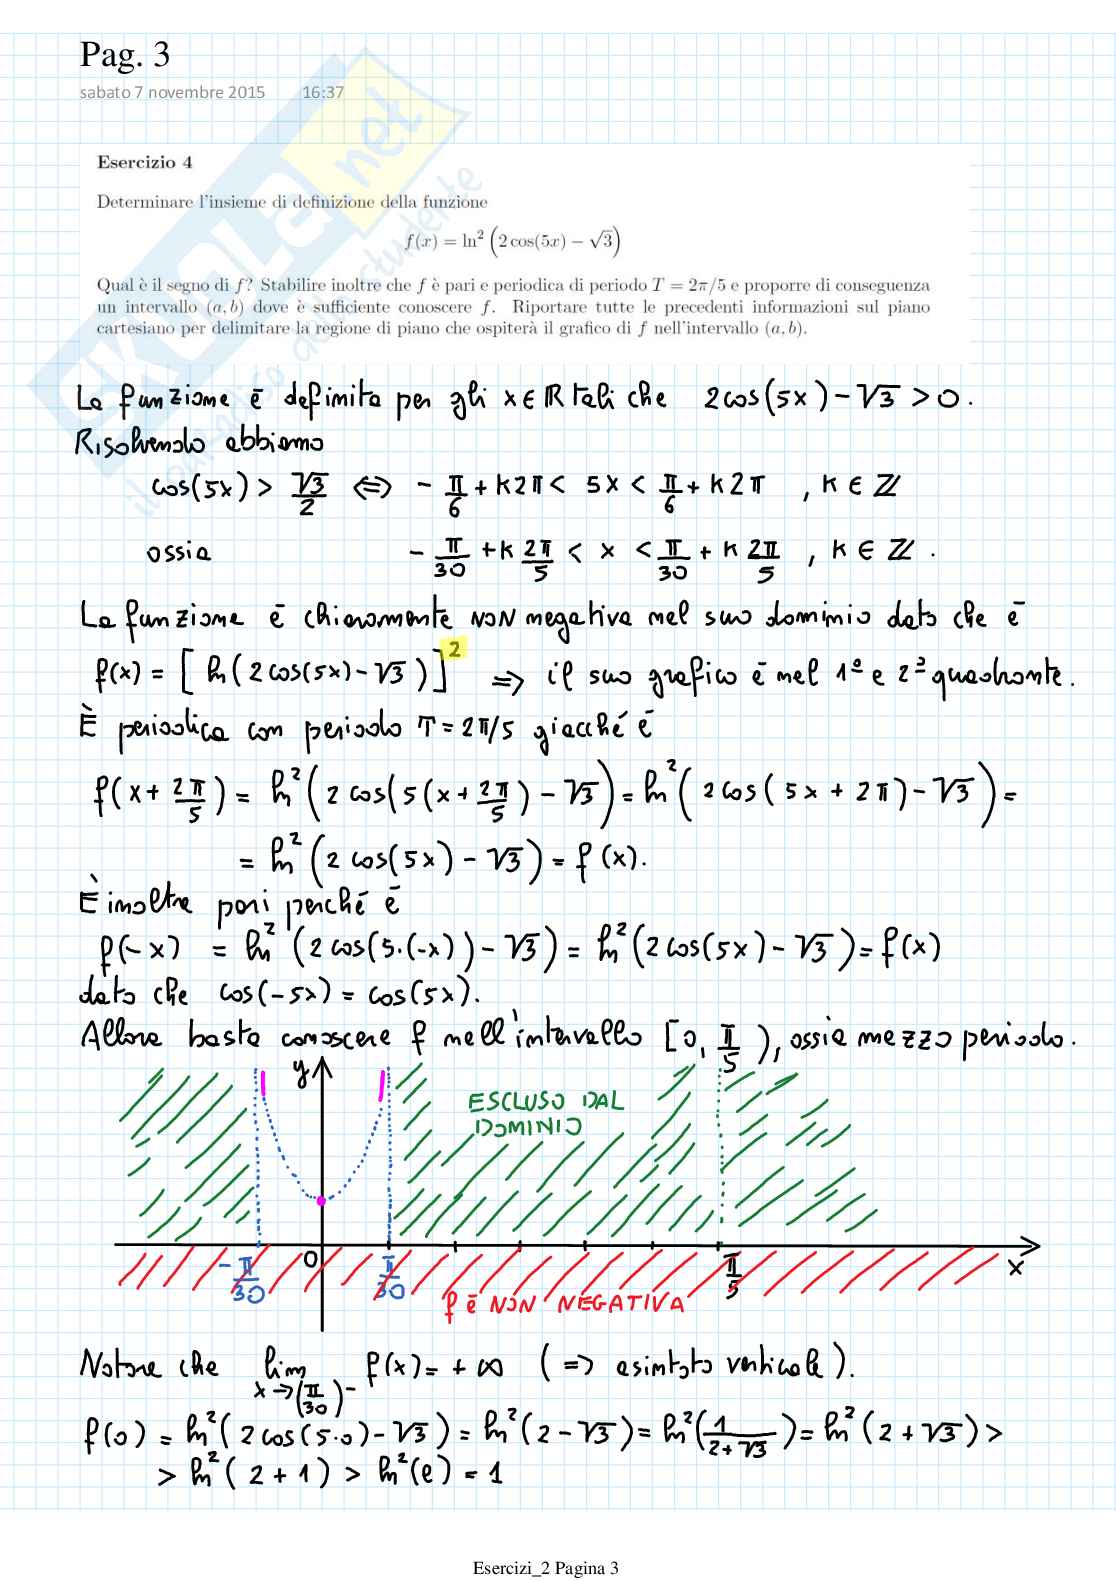 Pag. 3
sabato 7 novembre 2015 16:37
SKUOLA.net
il paradiso dello studente
Esercizio 4
Determinare l'insieme di definizione della funzione
f(x) = ln² (2 cos(5x) − √3)
Qual è il segno di f? Stabilire inoltre che f è pari e periodica di periodo T = 2π/5 e proporre di conseguenza
un intervallo (a, b) dove è sufficiente conoscere f. Riportare tutte le precedenti informazioni sul piano
cartesiano per delimitare la regione di piano che ospiterà il grafico di f nell'intervallo (a, b).
La funzione è definita per gli x ∈ ℝ tali che 2cos(5x) − √3 > 0.
Risolvendo abbiamo
cos(5x) > √3/2 ⇔ − π/6 + k2π < 5x < π/6 + k2π , k ∈ ℤ
ossia − π/30 + k 2π/5 < x < π/30 + k 2π/5 , k ∈ ℤ .
La funzione è chiaramente NON negativa nel suo dominio dato che è
f(x) = [ln(2cos(5x) − √3)]² ⇒ il suo grafico è nel 1° e 2° quadrante.
È periodica con periodo T = 2π/5 giacché è
f(x + 2π/5) = ln²(2cos(5(x + 2π/5) − √3) = ln²(2cos(5x + 2π) − √3) =
= ln²(2cos(5x) − √3) = f(x).
È inoltre pari perché è
f(−x) = ln²(2cos(5·(−x)) − √3) = ln²(2cos(5x) − √3) = f(x)
dato che cos(−5x) = cos(5x).
Allora basta conoscere f nell'intervallo [0, π/5), ossia mezzo periodo.
y
ESCLUSO DAL
DOMINIO
− π/30 0 π/30 π/5 x
f è NON NEGATIVA
Notare che lim x→(π/30)⁻ f(x) = +∞ (⇒ asintoto verticale).
f(0) = ln²(2cos(5·0) − √3) = ln²(2 − √3) = ln²(1/(2+√3)) = ln²(2 + √3) >
> ln²(2 + 1) > ln²(e) = 1
Esercizi_2 Pagina 3